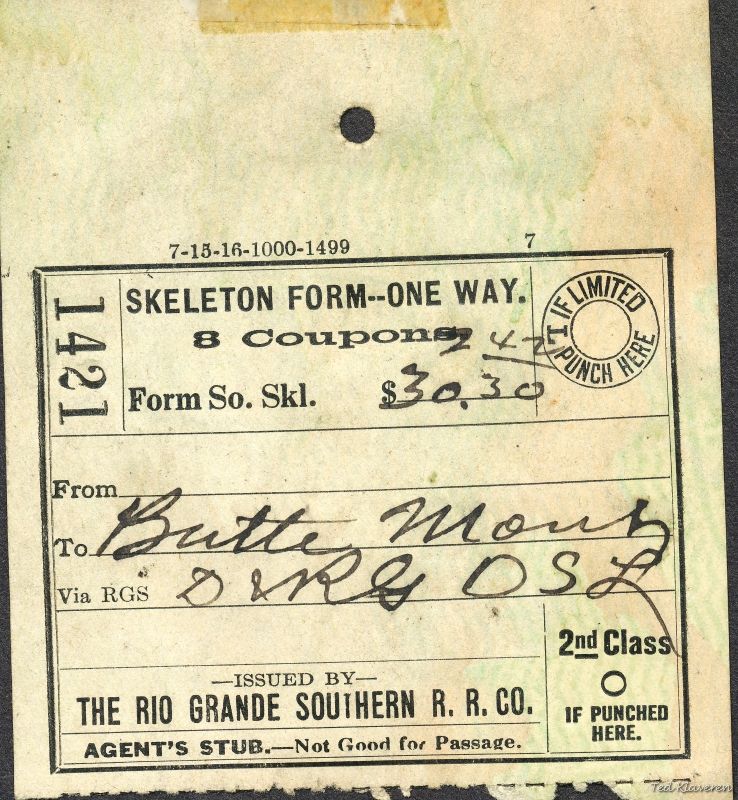 7-15-16-1000-1499 7
1421
SKELETON FORM--ONE WAY.
8 Coupons
2 42
Form So. Skl. $30.30
IF LIMITED
PUNCH HERE
From
To Butte Mont
Via RGS D&RG OSL
2nd Class
IF PUNCHED
HERE.
—ISSUED BY—
THE RIO GRANDE SOUTHERN R. R. CO.
AGENT'S STUB.—Not Good for Passage.
Ted Klaveren